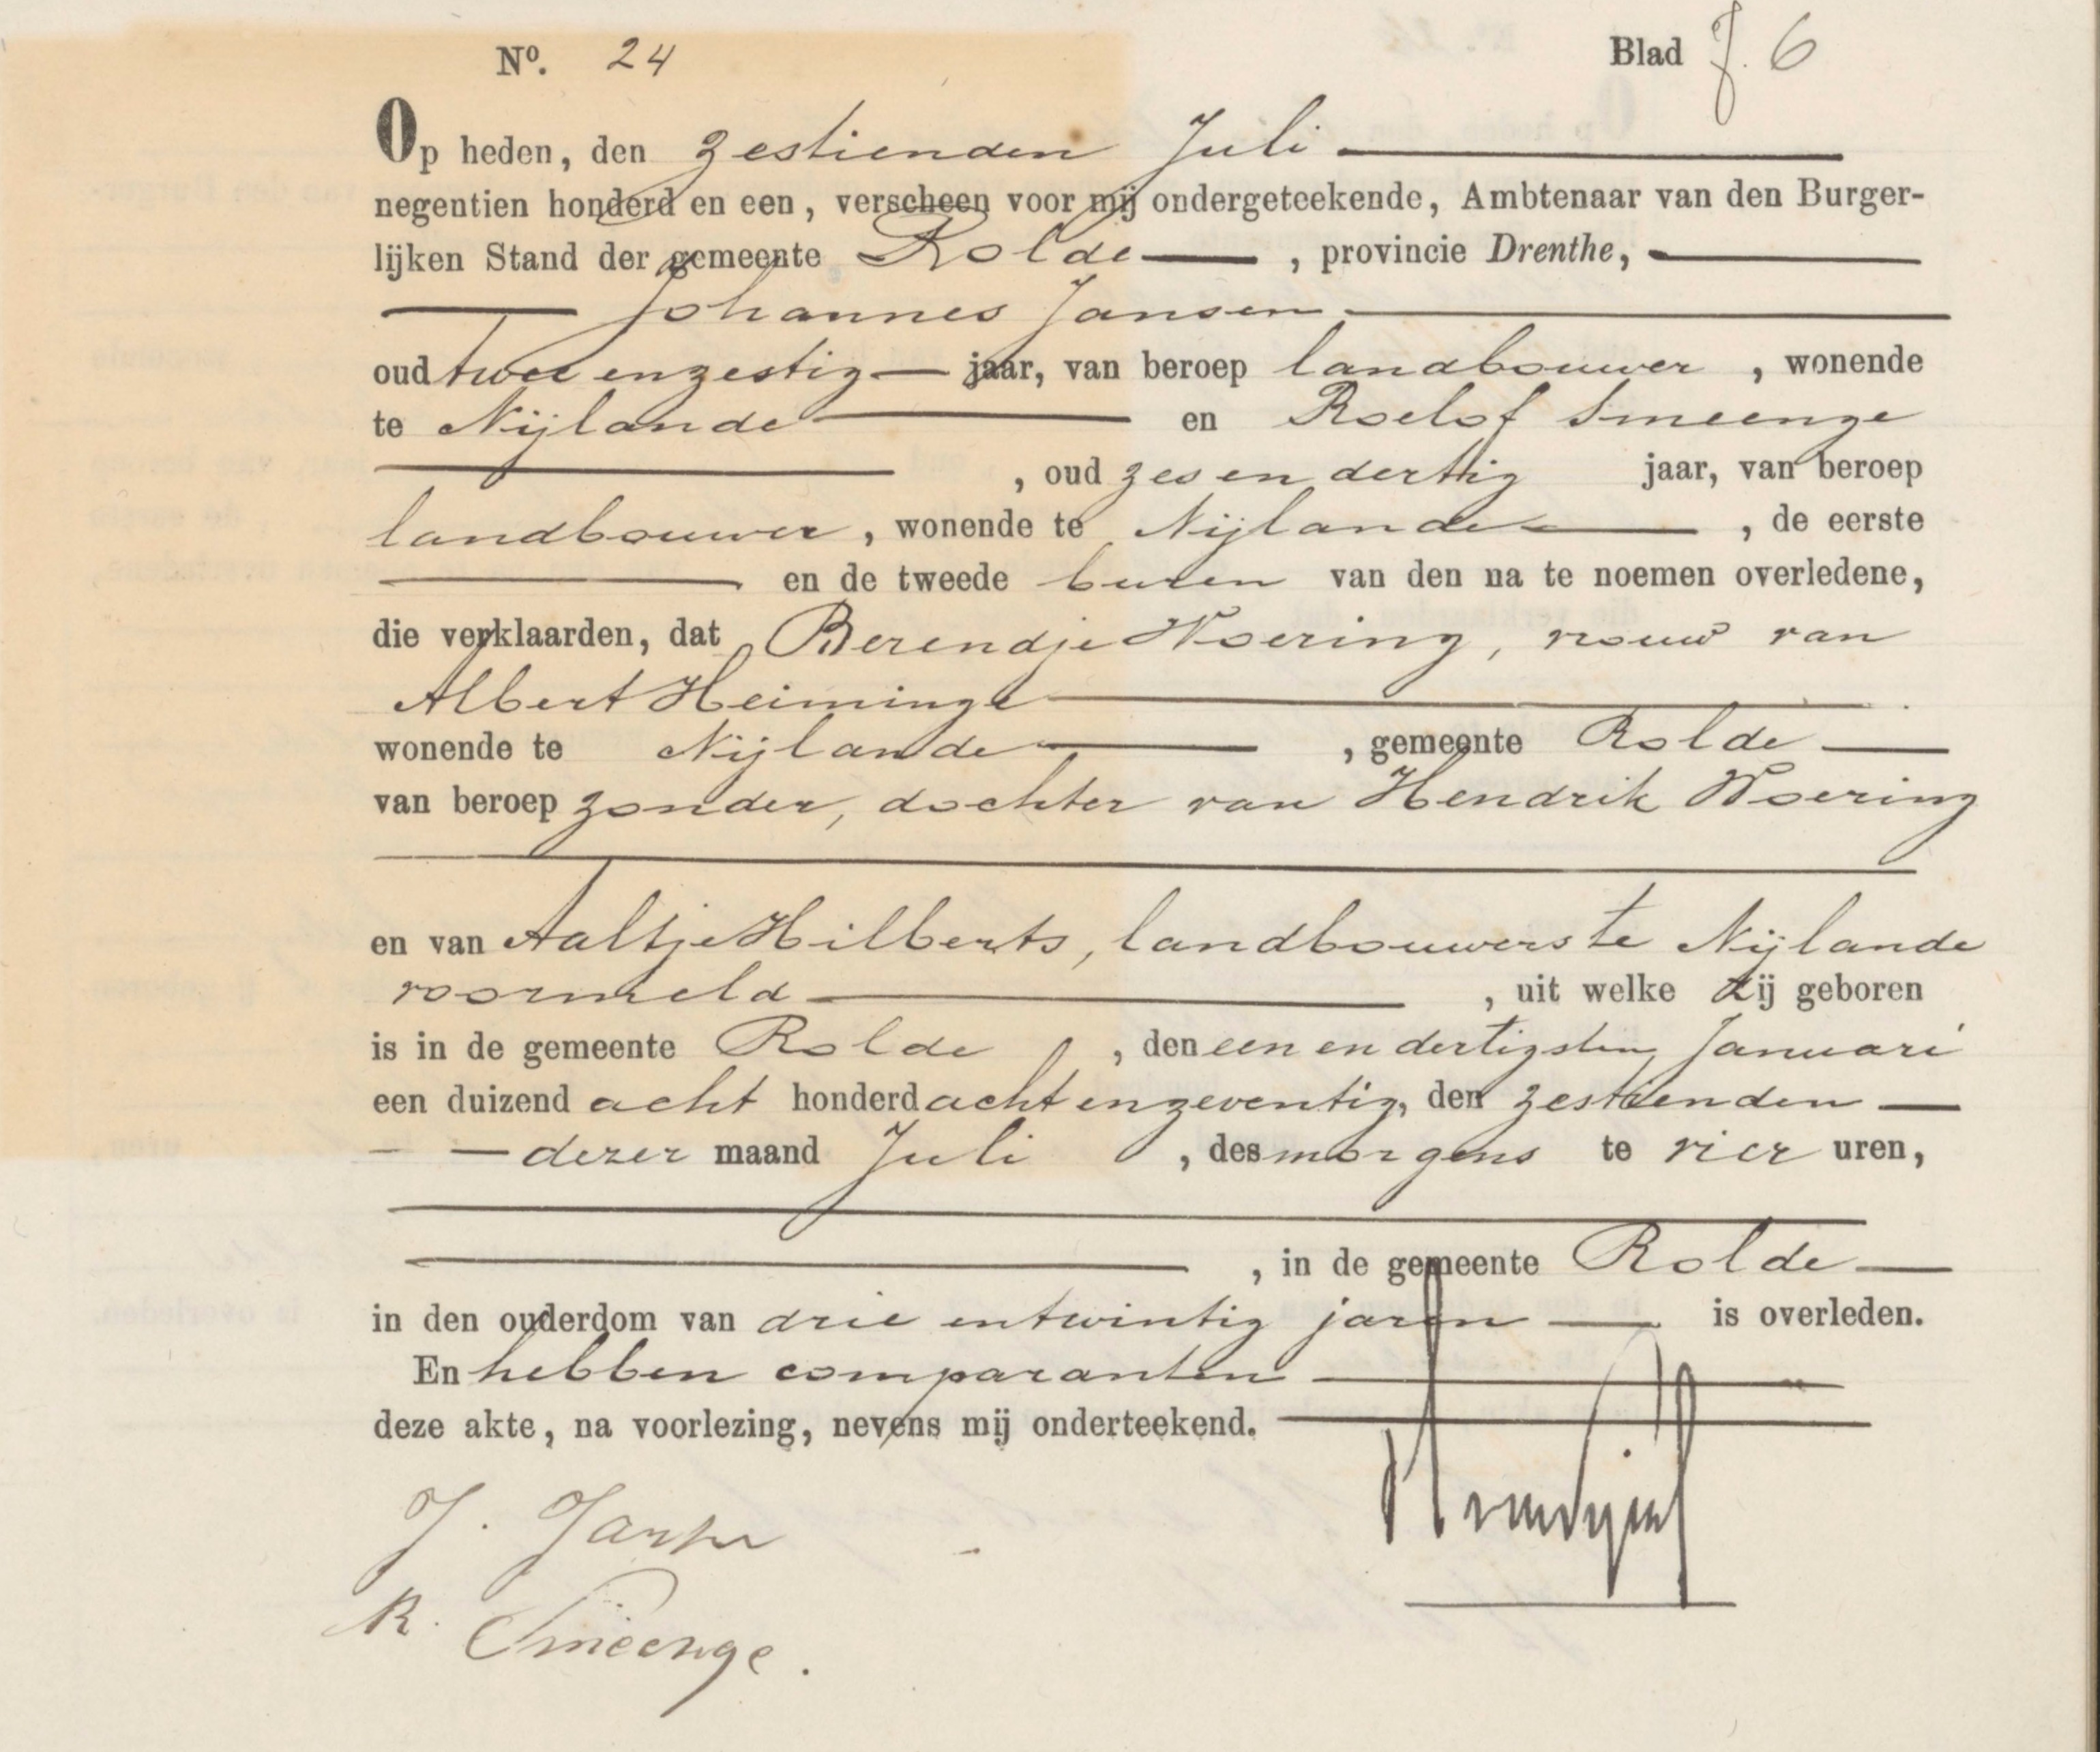 Nº. 24 Blad f. 6
Op heden, den zestienden Juli
negentien honderd en een, verscheen voor mij ondergeteekende, Ambtenaar van den Burger-
lijken Stand der gemeente Rolde, provincie Drenthe,
Johannes Jansen
oud twee en zestig jaar, van beroep landbouwer, wonende
te Nijlande en Roelof Smeenge
, oud zes en dertig jaar, van beroep
landbouwer, wonende te Nijlande, de eerste
en de tweede buren van den na te noemen overledene,
die verklaarden, dat Berendje Woering, vrouw van
Albert Heiminge
wonende te Nijlande, gemeente Rolde
van beroep zonder, dochter van Hendrik Woering
en van Aaltje Hilberts, landbouwers te Nijlande
voormeld, uit welke zij geboren
is in de gemeente Rolde, den een en dertigsten Januari
een duizend acht honderd acht en zeventig, den zestienden
dezer maand Juli, des morgens te vier uren,
, in de gemeente Rolde
in den ouderdom van drie en twintig jaren is overleden.
En hebben comparanten
deze akte, na voorlezing, nevens mij onderteekend.
J. Jansen
R. Smeenge.